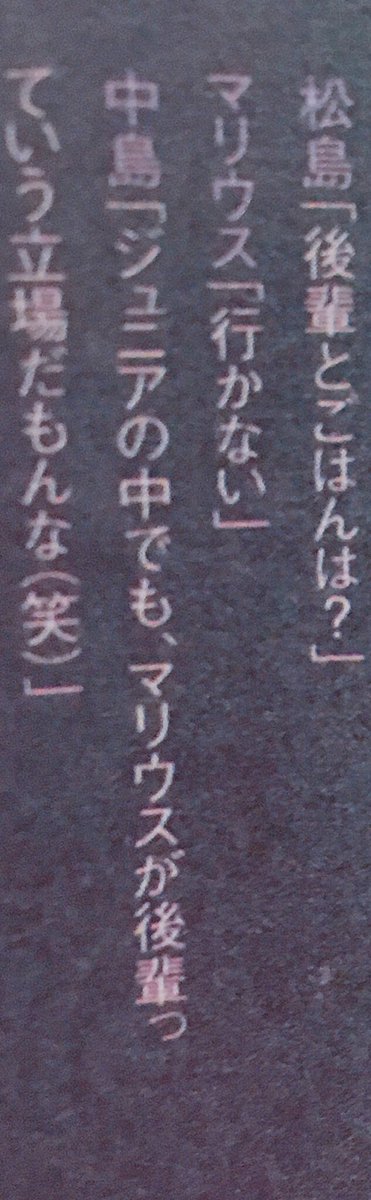 松島「後輩とごはんは？」
マリウス「行かない」
中島「ジュニアの中でも、マリウスが後輩っ
ていう立場だもんな（笑）」